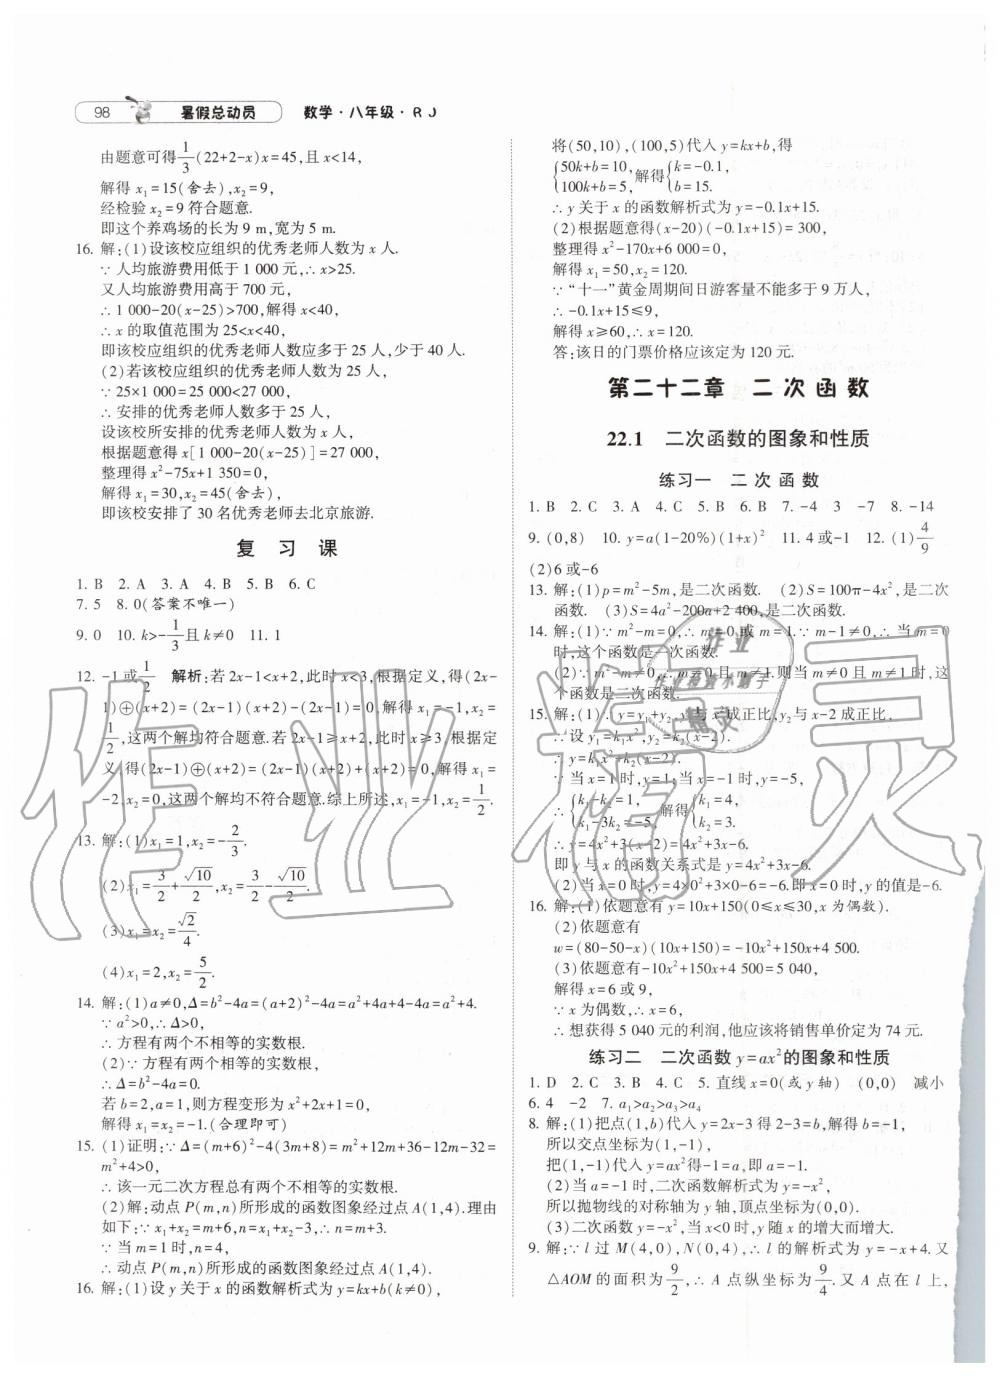 98 暑假总动员 数学·八年级·RJ
由题意可得1/3(22+2-x)x=45,且x<14,
解得x₁=15(舍去),x₂=9,
经检验x₂=9符合题意.
即这个养鸡场的长为9 m,宽为5 m.
16. 解:(1)设该校应组织的优秀老师人数为x人.
∵人均旅游费用低于1 000元,∴x>25.
又人均旅游费用高于700元,
∴1 000-20(x-25)>700,解得x<40,
∴x的取值范围为25<x<40,
即该校应组织的优秀老师人数应多于25人,少于40人.
(2)若该校应组织的优秀老师人数为25人,
∵25×1 000=25 000<27 000,
∴安排的优秀老师人数多于25人,
设该校所安排的优秀老师人数为x人,
根据题意得x[1 000-20(x-25)]=27 000,
整理得x²-75x+1 350=0,
解得x₁=30,x₂=45(舍去),
即该校安排了30名优秀老师去北京旅游.
复 习 课
1. B 2. A 3. A 4. B 5. B 6. C
7. 5 8. 0(答案不唯一)
9. 0 10. k>-1/3且k≠0 11. 1
12. -1或1/2 解析:若2x-1<x+2,此时x<3,根据定义,得(2x-
1)⊕(x+2)=(2x-1)(x+2)-(2x-1)=0,解得x₁=-1,x₂=
1/2,这两个解均符合题意.若2x-1≥x+2,此时x≥3,根据定
义,得(2x-1)⊕(x+2)=(2x-1)(x+2)+(x+2)=0,解得x₁=
-2,x₂=0,这两个解均不符合题意.综上所述,x₁=-1,x₂=1/2.
13. 解:(1)x₁=1,x₂=-2/3.
(2)x₁=3/2+√10/2,x₂=3/2-√10/2.
(3)x₁=x₂=√2/4.
(4)x₁=2,x₂=5/2.
14. 解:(1)a≠0,Δ=b²-4a=(a+2)²-4a=a²+4a+4-4a=a²+4.
∵a²>0,∴Δ>0,
∴方程有两个不相等的实数根.
(2)∵方程有两个相等的实数根,
∴Δ=b²-4a=0.
若b=2,a=1,则方程变形为x²+2x+1=0,
解得x₁=x₂=-1.(合理即可)
15. (1)证明:∵Δ=(m+6)²-4(3m+8)=m²+12m+36-12m-32=
m²+4>0,
∴该一元二次方程总有两个不相等的实数根.
(2)解:动点P(m,n)所形成的函数图象经过点A(1,4).理由
如下:∵x₁+x₂=m+6,n=x₁+x₂-3,∴n=m+3.
∵当m=1时,n=4,
∴动点P(m,n)所形成的函数图象经过点A(1,4).
16. 解:(1)设y关于x的函数解析式为y=kx+b(k≠0),
将(50,10),(100,5)代入y=kx+b,得
{50k+b=10, 100k+b=5, 解得{k=-0.1, b=15.
∴y关于x的函数解析式为y=-0.1x+15.
(2)根据题意得(x-20)(-0.1x+15)=300,
整理得x²-170x+6 000=0,
解得x₁=50,x₂=120.
∵“十一”黄金周期间日游客量不能多于9万人,
∴-0.1x+15≤9,
解得x≥60,∴x=120.
答:该日的门票价格应该定为120元.
第二十二章 二次函数
22.1 二次函数的图象和性质
练习一 二次函数
1. B 2. C 3. A 4. C 5. B 6. B 7. -4 3 -7 8. -14
9. (0,8) 10. y=a(1-20%)(1+x)² 11. 4或-1 12. (1)4/9
(2)6或-6
13. 解:(1)p=m²-5m,是二次函数. (2)S=100π-4x²,是二次
函数. (3)S=4a²-200a+2 400,是二次函数.
14. 解:(1)∵m²-m=0,∴m=0或m=1.∵m-1≠0,∴当m=0
时,这个函数是一次函数.
(2)∵m²-m≠0,∴m≠0且m≠1.则当m≠0且m≠1时,这
个函数是二次函数.
15. 解:(1)∵y=y₁+y₂,y₁与x²成正比,y₂与x-2成正比,
∴设y₁=k₁x²,y₂=k₂(x-2).
∴y=k₁x²+k₂(x-2).
∵当x=1时,y=1;当x=-1时,y=-5,
∴{k₁-k₂=1, k₁-3k₂=-5, 解得{k₁=4, k₂=3.
∴y=4x²+3(x-2)=4x²+3x-6.
即y与x的函数关系式是y=4x²+3x-6.
(2)当x=0时,y=4×0²+3×0-6=-6.即当x=0时,y的值是-6.
16. 解:(1)依题意有y=10x+150(0≤x≤30,x为偶数).
(2)依题意有
w=(80-50-x)(10x+150)=-10x²+150x+4 500.
(3)依题意有-10x²+150x+4 500=5 040,
解得x=6或9,
∵x为偶数,∴x=6,
∴想获得5 040元的利润,他应该将销售单价定为74元.
练习二 二次函数y=ax²的图象和性质
1. D 2. C 3. B 4. C 5. 直线x=0(或y轴) (0,0) 减小
6. 4 -2 7. a₁>a₂>a₃>a₄
8. 解:(1)把点(1,b)代入y=2x-3得2-3=b,解得b=-1,
所以交点坐标为(1,-1),
把(1,-1)代入y=ax²得-1=a,即a=-1.
(2)当a=-1时,二次函数解析式为y=-x²,
所以抛物线的对称轴为y轴,顶点坐标为(0,0).
(3)二次函数y=-x²,当x<0时,y随x的增大而增大.
9. 解:∵l过M(4,0),N(0,4),∴l的解析式为y=-x+4.又
△AOM的面积为9/2,∴A点纵坐标为9/4.又A点在l上,
作业精灵
作业
作业检查小助手
精灵